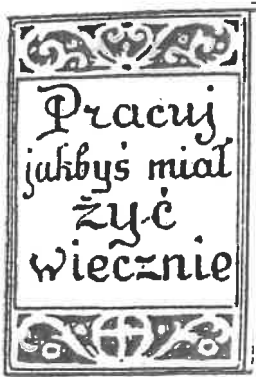 Pracuj
jakbyś miał
żyć
wiecznie